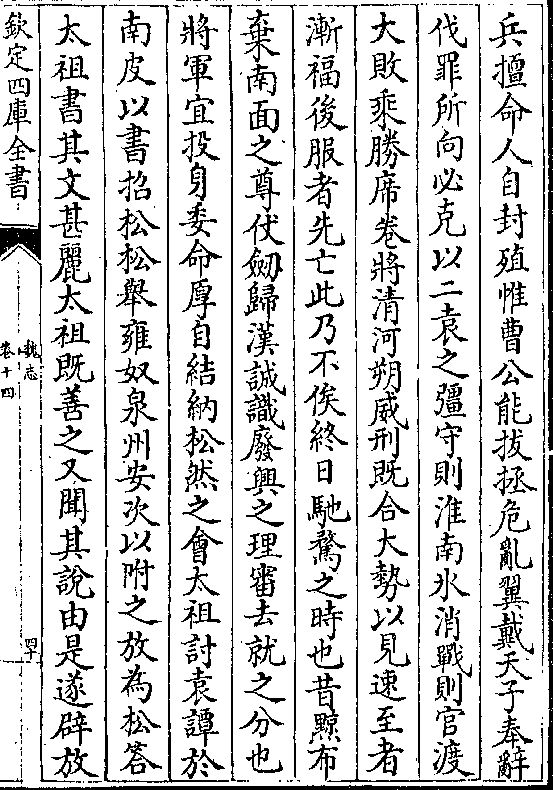 兵擅命人自封殖惟曹公能拔拯危亂翼戴天子奉辭
伐罪所向必克以二袁之彊守則淮南氷消戰則官渡
大敗乘勝席卷將清河朔威刑既合大勢以見速至者
漸福後服者先亡此乃不俟終日馳騖之時也昔黥布
棄南面之尊仗劒歸漢誠識廢興之理審去就之分也
將軍宜投身委命厚自結納松然之會太祖討袁譚於
南皮以書招松松舉雍奴泉州安次以附之放為松答
太祖書其文甚麗太祖既善之又聞其說由是遂辟放
欽定四庫全書
魏志
卷十四
四十